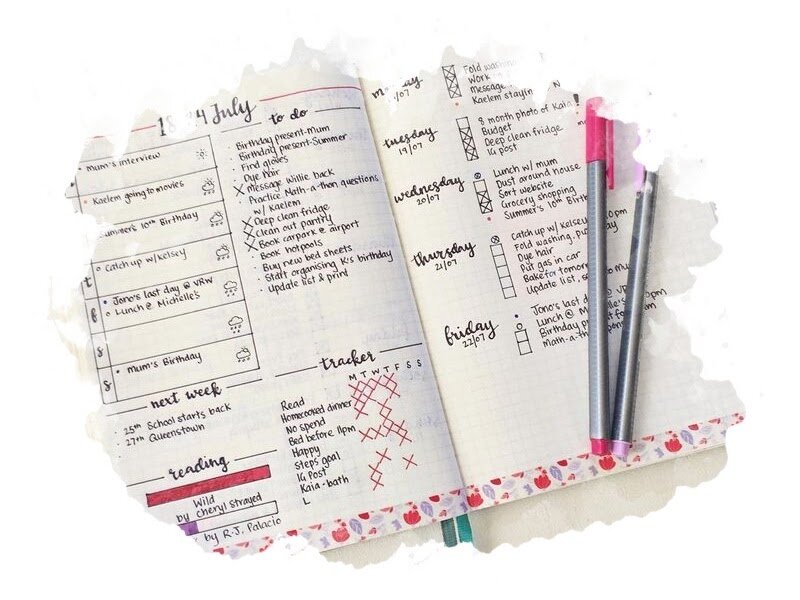 July
Mum's interview
Kaelem going to movies
Summer's 10th Birthday
t
Catch up w/ Kelsey
f
Jono's last day @ VRW
Lunch @ Michelle's
s
s
Mum's Birthday
next week
25th School starts back
27th Queenstown
reading
Wild
by Cheryl Strayed
by R.J. Palacio
to do
Birthday present-Mum
Birthday present-Summer
Find gloves
Dye hair
Message Willie back
Practice Math-a-thon questions
w/ Kaelem
Deep clean fridge
Clean out pantry
Book carpark @ airport
Book hotpools
Buy new bed sheets
Start organising K's birthday
Update list & print
tracker
M T W T F S S
Read
Homecooked dinner
No spend
Bed before 11pm
Happy
Steps goal
IG Post
Kaia-bath
L
/07
Fold washing
Work
Message
Kaelem stayin
tuesday
19/07
8 month photo of Kaia
Budget
Deep clean fridge
IG post
wednesday
20/07
Lunch w/ mum
Dust around house
Sort website
Grocery shopping
Summer's 10th Birth
thursday
21/07
Catch up w/ Kelsey
Fold washing, pu
Dye hair
Put gas in car
Bake for tomor
Update list, s
friday
22/07
Jono's last day @
Lunch @
Birthday
Math-a-th